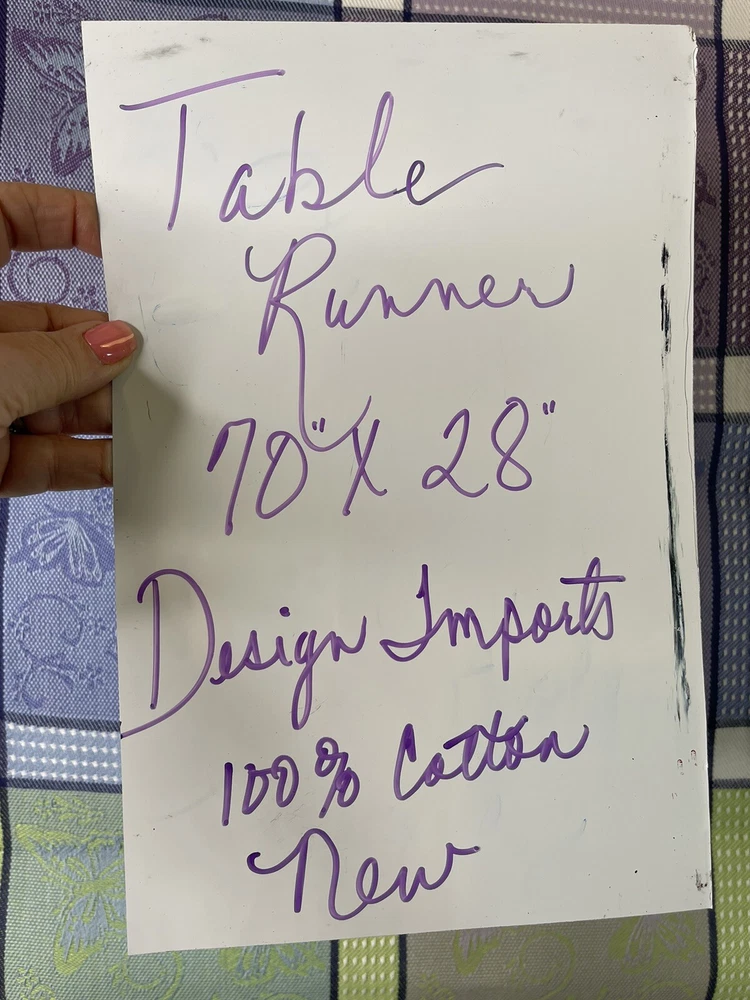 Table
Runner
70" X 28"
Design Imports
100% Cotton
New